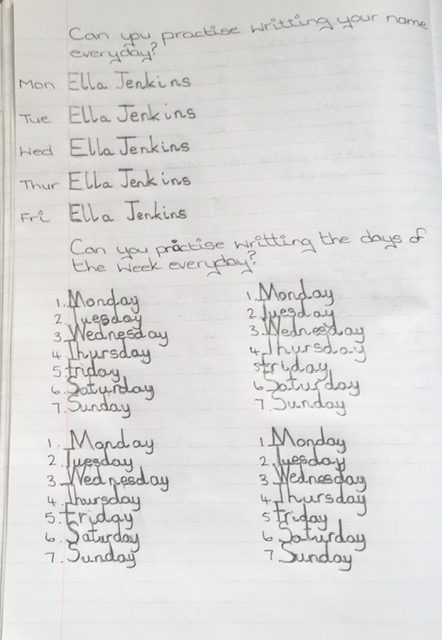 Can you practise writting your name
everyday?
Mon Ella Jenkins
Tue Ella Jenkins
Wed Ella Jenkins
Thur Ella Jenkins
Fri Ella Jenkins
Can you practise writting the days of
the week everyday?
1. Monday
2. Tuesday
3. Wednesday
4. Thursday
5 friday
6. Saturday
7. Sunday
1. Monday
2. Tuesday
3. Wednesday
4. Thursday
5 friday
6. Saturday
7. Sunday
1. Monday
2. Tuesday
3. Wednesday
4. Thursday
5. Friday
6. Saturday
7. Sunday
1. Monday
2. Tuesday
3. Wednesday
4. Thursday
5 Friday
6. Saturday
7. Sunday